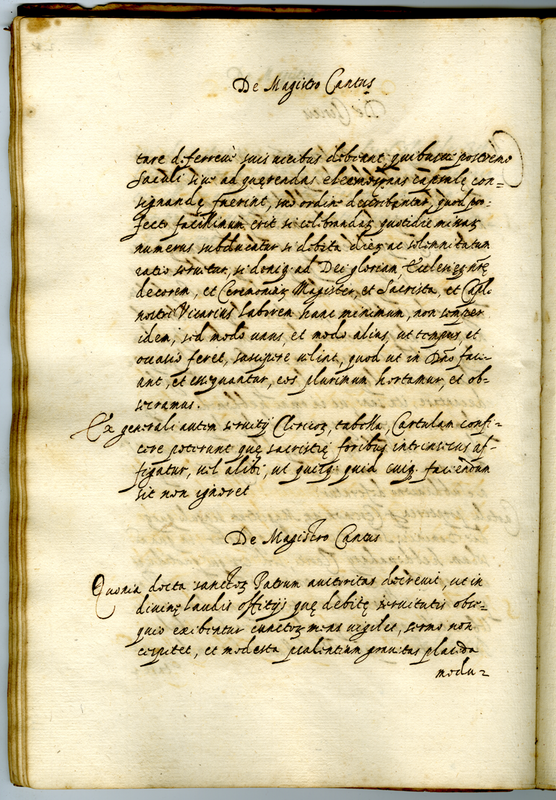 De Magistro Cantus
tare deferreve suis vicibus debeant, quibusve postremo
Jaculi sive ad querendas eleemosynas capsulę con=
signandę fuerint, suo ordine describentur, quod pro=
fecto facillimum erit si celebrandaꝝ quotidie missaꝝ
numerus subducatur si debita dieꝝ ac solemnitatum
ratio servetur, si deniq; ad Dei gloriam, Ecclesięq; nr̃ę
decorem, et Ceremoniaꝝ Magister, et Sacrista, et Capli
nostri Vicarius laborem hunc minimum, non semper
idem, sed modo unus, et modo alius, ut tempus, et
occasio feret, suscipere velint, quod ut in Dño faci=
ant, et exequantur, eos plurimum hortamur, et ob=
secramus.
Ex generali autem servitij Clericoꝝ tabella, Cartulam confi=
cere poterunt quę sacristię foribus intrinsecus af=
figatur, vel alibi, ut quisq; quid cuiq; faciendum
sit non ignoret
De Magistro Cantus
Quonia docta sanctoꝝ Patrum auctoritas decrevit, ut in
divinę laudis offitijs quę debitę servitutis obse=
quio exibentur cunctoꝝ mens vigilet, sermo non
cespitet, et modesta psalentium gravitas placida
modu=